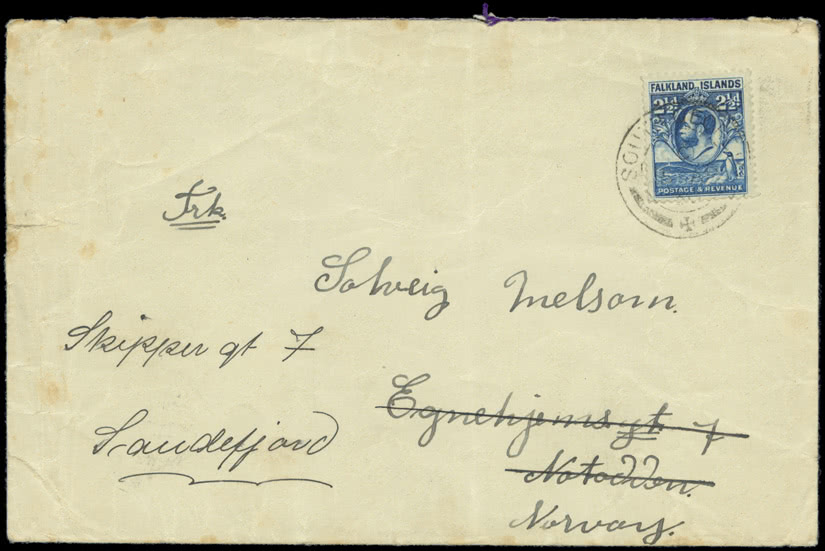 FALKLAND ISLANDS
2½d 2½d
POSTAGE & REVENUE
SOUTH
Frk.
Solveig Melsom.
Skipper gt 7
Sandefjord
Egnehjems gt. 7
Notodden.
Norway.